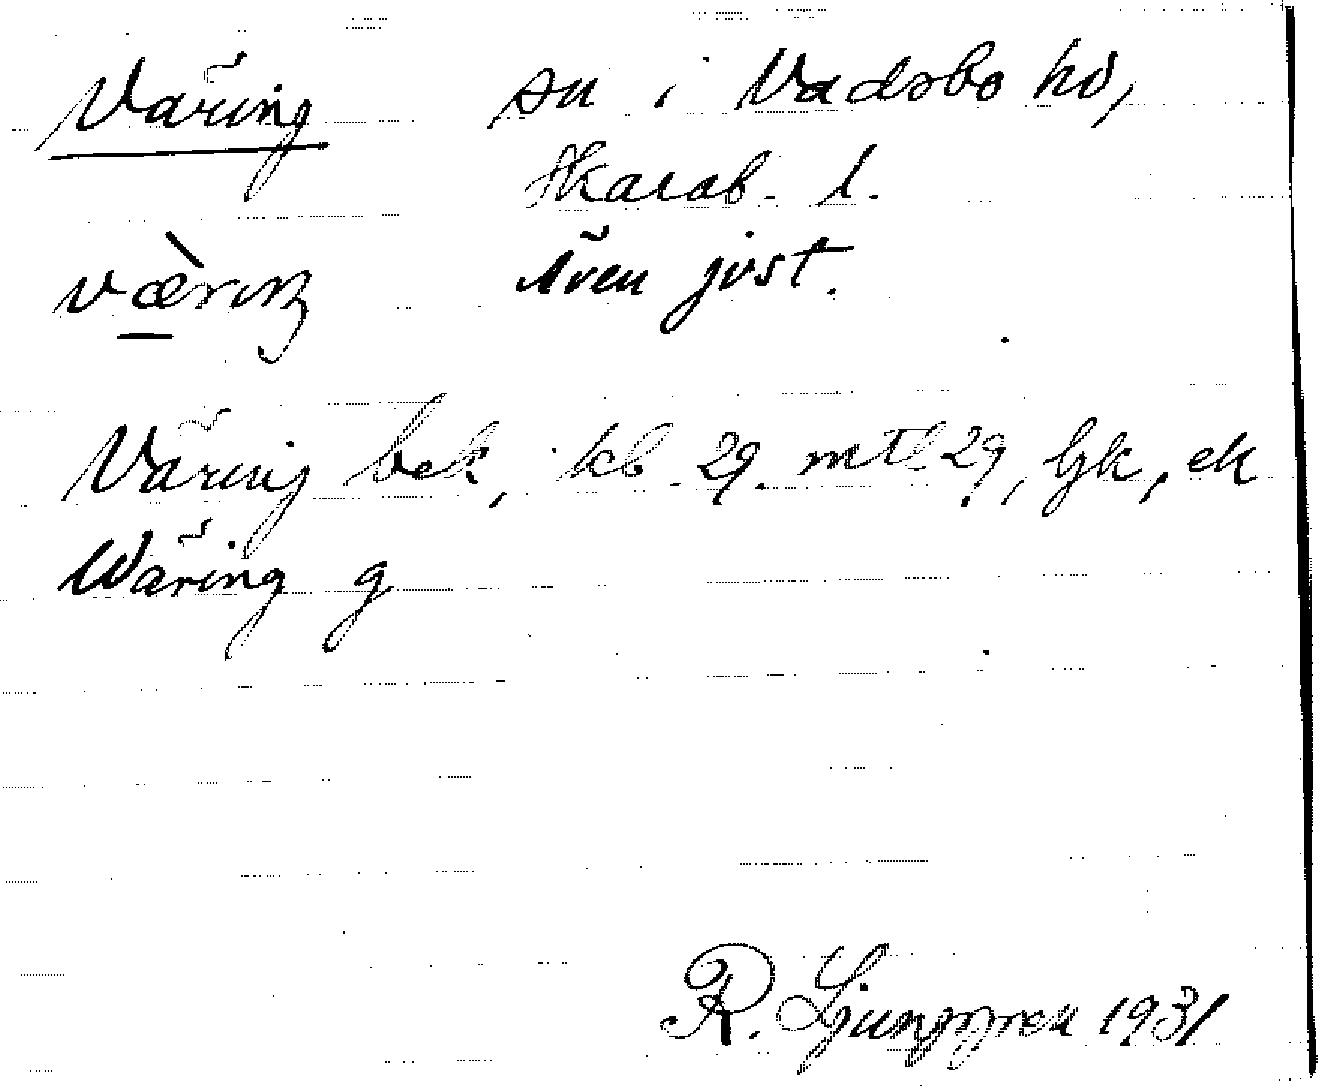 Väring sn i Vadsbo hd,
Skarab. l.
væ̀rıŋ Även jvst.
Väring bek, kb 29. mtl 29, Gk, ek
Wäring g
R. Ljunggren 1931